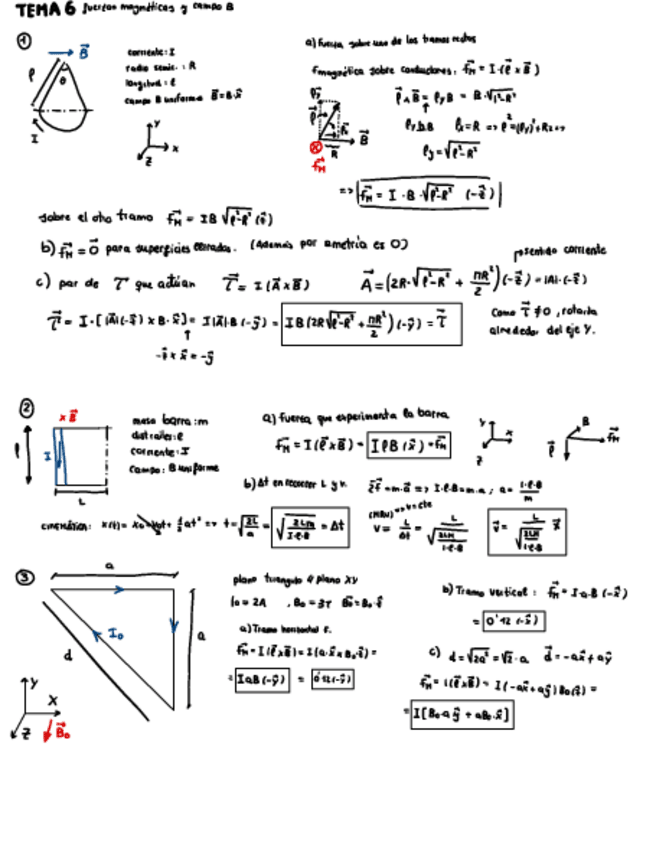 TEMA 6 fuerzas magnéticas y campo B
①
B⃗
ℓ
θ
I
corriente: I
radio semic.: R
longitud: ℓ
campo B uniforme B⃗=B·x⃗
y
x
z
a) fuerza sobre uno de los tramos rectos
f magnética sobre conductores: f⃗M = I·(ℓ⃗ x B⃗)
B⃗
R
f⃗M
ℓy = √ℓ²-R²
=> f⃗M = I·B·√ℓ²-R² (-z⃗)
sobre el otro tramo f⃗M = IB√ℓ²-R² (z⃗)
b) f⃗M = 0⃗ para superficies cerradas. (Además por simetría es 0)
c) par de τ que actúan τ⃗ = I(A⃗xB⃗) A⃗ = (2R·√ℓ²-R² + πR²/2)(-z⃗) = |A|·(-z⃗)
sentido corriente
τ⃗ = I·[|A|(-z⃗) x B·x⃗] = I|A|·B(-y⃗) = IB(2R√ℓ²-R² + πR²/2)(-y⃗) = τ⃗
Como τ⃗ ≠ 0, rotaría
alrededor del eje Y.
-z⃗ x x⃗ = -y⃗
②
x B⃗
ℓ
I
L
masa barra: m
dist railes: ℓ
corriente: I
campo: B uniforme
a) fuerza que experimenta la barra
f⃗M = I(ℓ⃗xB⃗) = IℓB(x⃗) = f⃗M
y
x
z
B
f⃗M
ℓ⃗
b) Δt en recorrer L y v. Σf⃗ = m·a⃗ => I·ℓ·B = m·a; a = I·ℓ·B/m
cinemática: x(t) = x₀ + v₀t + ½at² => t = √2L/a = √2Lm/I·ℓ·B = Δt
(MRU) => v = cte
v = L/Δt = L/√2LM/I·ℓ·B
v⃗ = L/√2LM/I·ℓ·B x⃗
③
a
a
I₀
d
y
x
z
B⃗₀
plano triangulo a plano XY
I₀ = 2A , B₀ = 3T B⃗₀ = B₀·z⃗
a) Tramo horizontal F.
f⃗M = I(ℓ⃗xB⃗) = I(a·x⃗xB₀·z⃗) =
= IaB(-y⃗) = 0'12(-y⃗)
b) Tramo vertical: f⃗M = I·a·B(-x⃗)
= 0'12(-x⃗)
c) d = √2a² = √2·a d⃗ = -ax⃗+ay⃗
f⃗M = I(ℓ⃗xB⃗) = I(-ax⃗+ay⃗)B₀(z⃗) =
= I[B₀·a y⃗ + aB₀·x⃗]